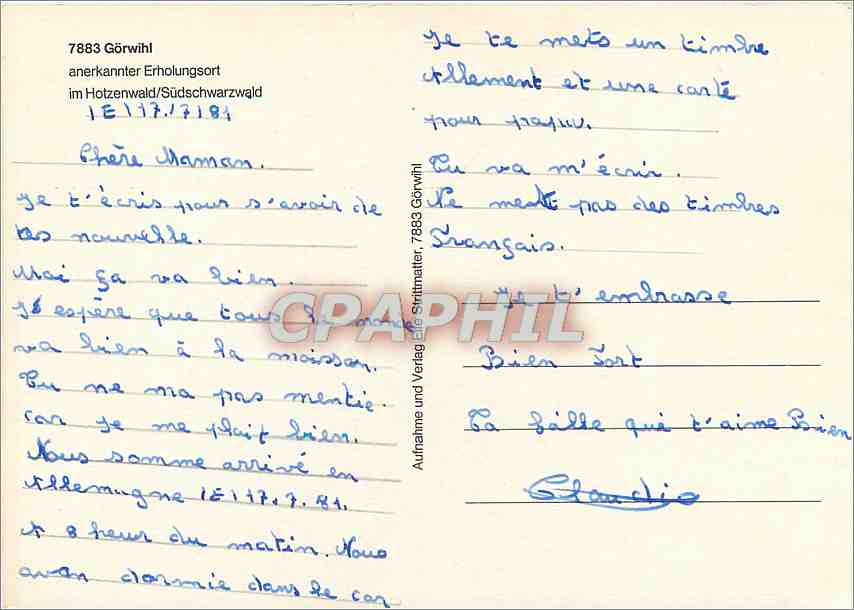 7883 Görwihl
anerkannter Erholungsort
im Hotzenwald/Südschwarzwald
lE 17.7.81
Chère Maman.
Je t'écris pour s'avoir de
tes nouvelle.
Moi ça va bien.
J'espère que tous le monde
va bien à la maisson.
Tu ne ma pas mentie.
car je me plait bien.
Nous somme arrivé en
Allemagne lE 17.7.81.
A 8 heur du matin. Nous
avon dormie dans le car
Je te mets un timbre
Allement et une carte
pour
Tu va m'écrir.
Ne met pas des timbres
Français.
Je t'embrasse
Bien Fort
Ta fille qui t'aime Bien
Claudie
Aufnahme und Verlag Elle Strittmatter, 7883 Görwihl
CPAPHIL